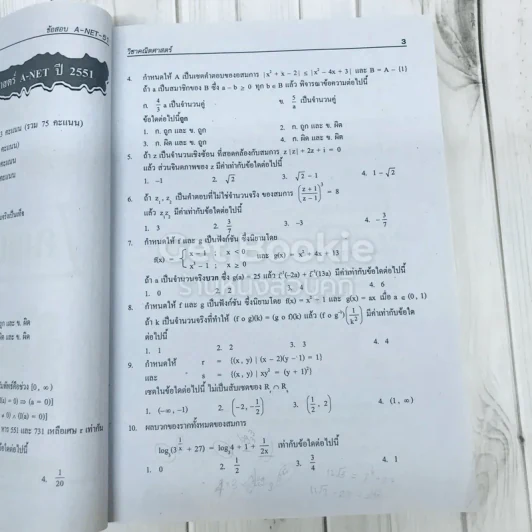 ข้อสอบ A-NET-51
ศาสตร์ A-NET ปี 2551
คะแนน (รวม 75 คะแนน)
คะแนน
วิชาคณิตศาสตร์
3
4. กำหนดให้ A เป็นเซตคำตอบของอสมการ |x² + x − 2| ≤ |x² − 4x + 3| และ B = A − {1}
ถ้า a เป็นสมาชิกของ B ซึ่ง a − b ≥ 0 ทุก b ∈ B แล้ว พิจารณาข้อความต่อไปนี้
ก. 4/3 a เป็นจำนวนคู่ ข. 5/a เป็นจำนวนคู่
ข้อใดต่อไปนี้ถูก
1. ก. ถูก และ ข. ถูก 2. ก. ถูก และ ข. ผิด
3. ก. ผิด และ ข. ถูก 4. ก. ผิด และ ข. ผิด
5. ถ้า z เป็นจำนวนเชิงซ้อน ที่สอดคล้องกับสมการ z|z| + 2z + i = 0
แล้ว ส่วนจินตภาพของ z มีค่าเท่ากับข้อใดต่อไปนี้
1. −1 2. √2 3. √2 − 1 4. 1 − √2
6. ถ้า z₁, z₂ เป็นคำตอบที่ไม่ใช่จำนวนจริง ของสมการ ((z+1)/(z−1))³ = 8
แล้ว z₁z₂ มีค่าเท่ากับข้อใดต่อไปนี้
1. 3 2. 3/7 3. −3 4. −3/7
7. กำหนดให้ f และ g เป็นฟังก์ชัน ซึ่งนิยามโดย
f(x) = { x − 1 ; x < 0
x³ − 1 ; x ≥ 0 และ g(x) = x² + 4x + 13
ถ้า a เป็นจำนวนจริงบวก ซึ่ง g(a) = 25 แล้ว f⁻¹(−2a) + f⁻¹(13a) มีค่าเท่ากับข้อใดต่อไปนี้
1. 0 2. 2 3. 4 4. 6
8. กำหนดให้ f และ g เป็นฟังก์ชัน ซึ่งนิยามโดย f(x) = x² − 1 และ g(x) = ax เมื่อ a ∈ (0, 1)
ถ้า k เป็นจำนวนจริงที่ทำให้ (f o g)(k) = (g o f)(k) แล้ว (f o g⁻¹)(1/k²) มีค่าเท่ากับข้อใด
ต่อไปนี้
1. 1 2. 2 3. 3 4. 4
9. กำหนดให้ r = {(x, y) | (x − 2)(y − 1) = 1}
และ s = {(x, y) | xy² = (y + 1)²}
เซตในข้อใดต่อไปนี้ ไม่เป็นสับเซตของ Rᵣ ∩ Rₛ
1. (−∞, −1) 2. (−2, −1/2) 3. (1/2, 2) 4. (1, ∞)
10. ผลบวกของรากทั้งหมดของสมการ
เท่ากับข้อใดต่อไปนี้
1. 0 2. 1/2 3. 3/4 4. 1
4. 1/20
Get Bookie
ร้านหนังสือนุ๊กกี้